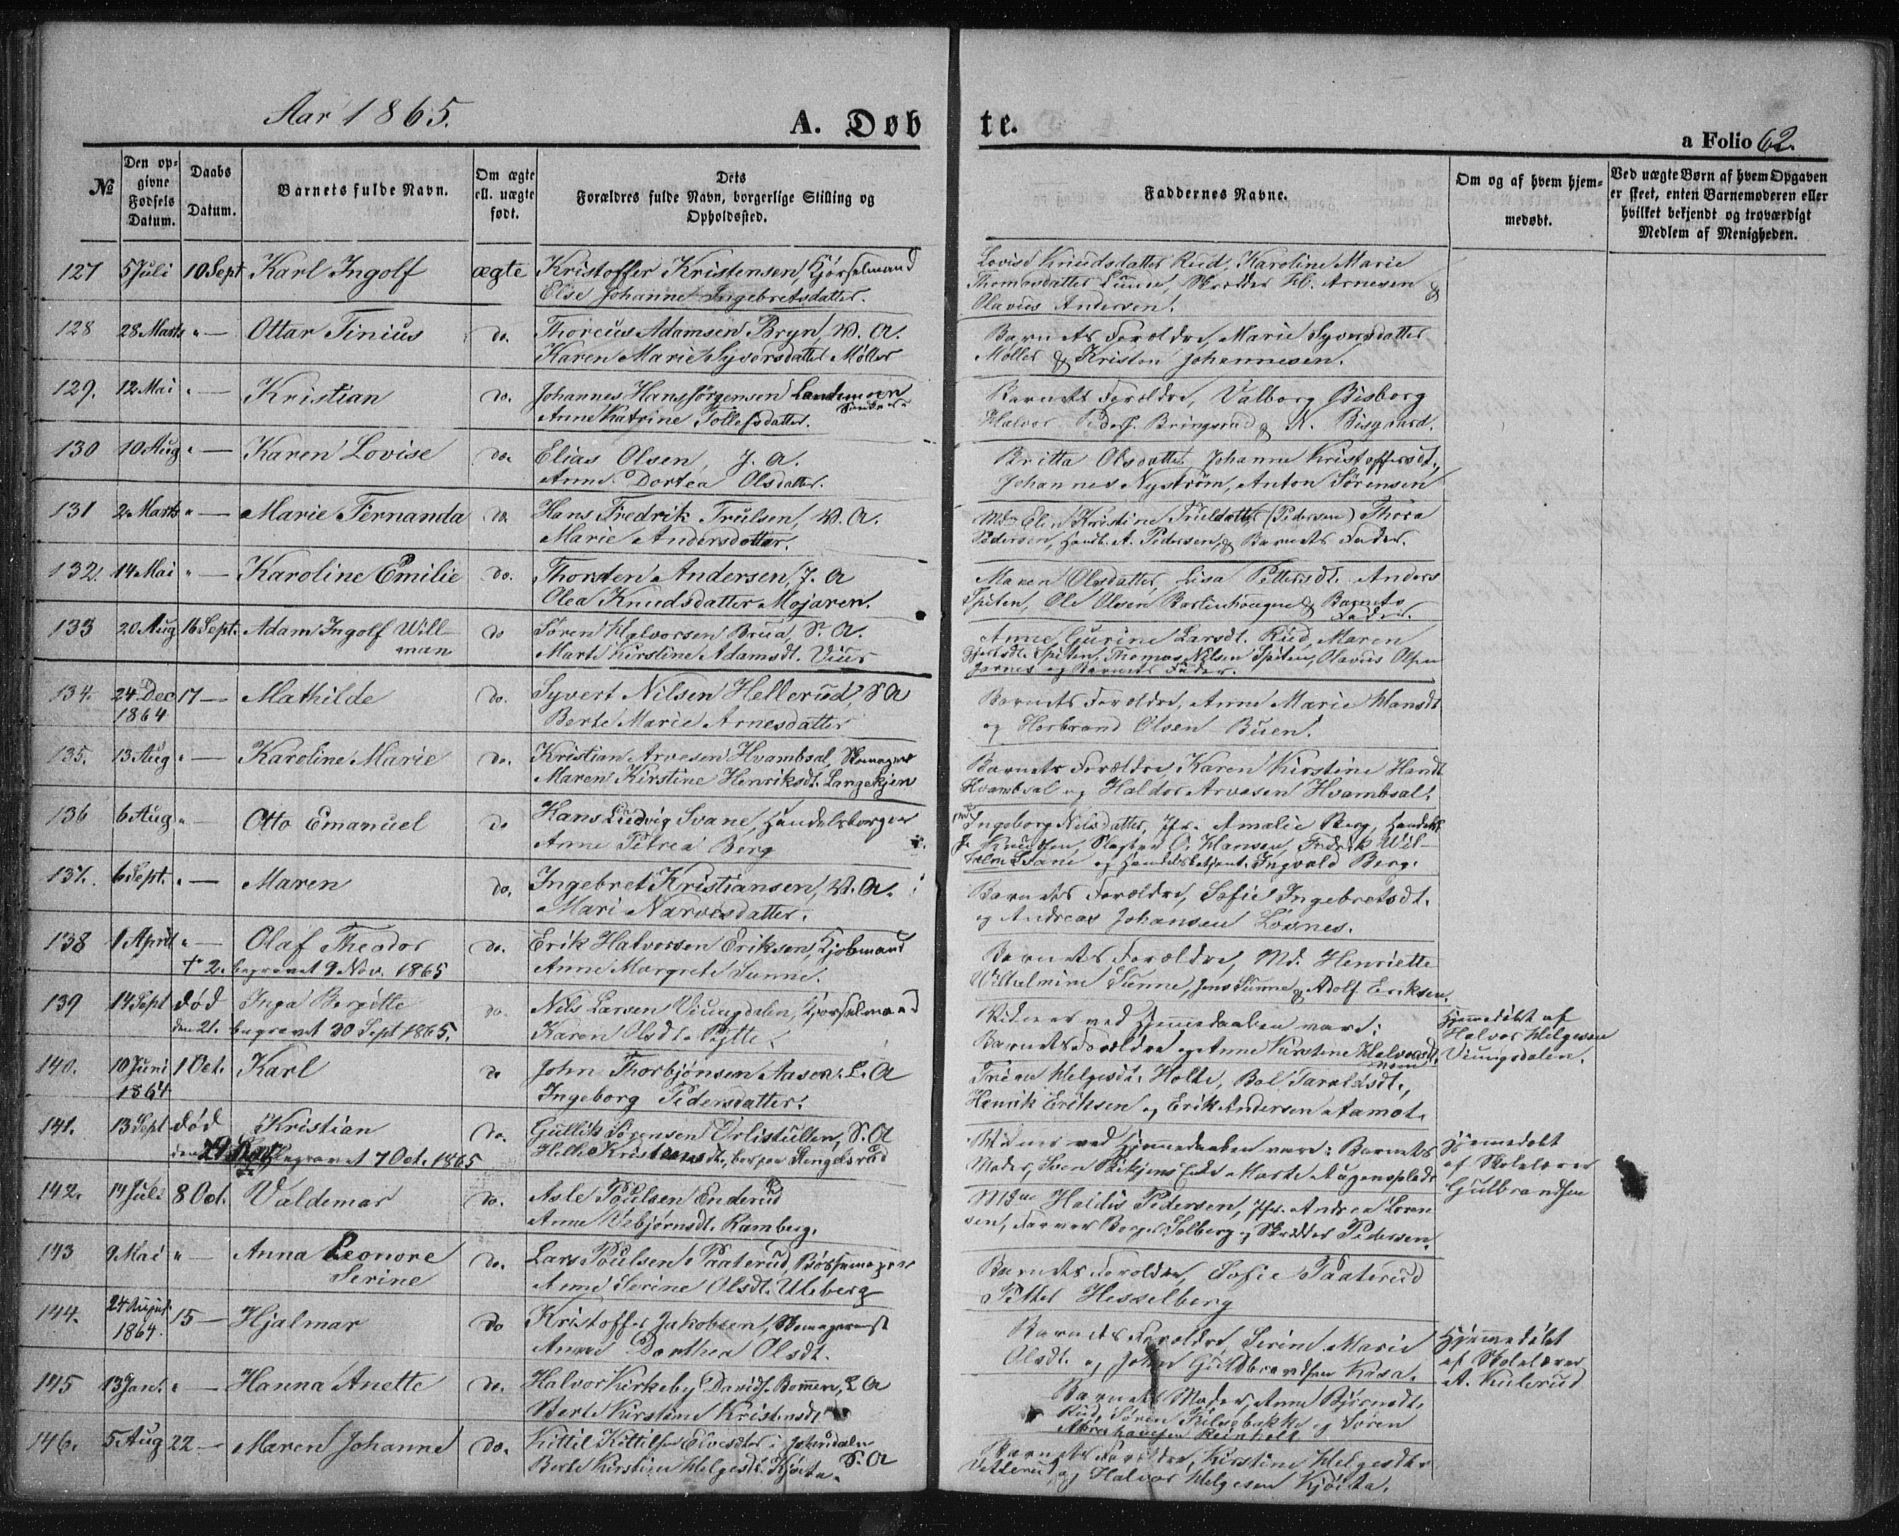 Aar 1865.
A. Døbte.
a Folio 62.
№
Den opgivne Fødsels Datum.
Daabs Datum.
Barnets fulde Navn.
Om ægte ell. uægte født.
Dets Forældres fulde Navn, borgerlige Stilling og Opholdssted.
Faddernes Navne.
Om og af hvem hjemmedøbt.
Ved uægte Børn af hvem Opgaven er skeet, enten Barnemoderen eller hvilket bekjendt og troværdigt Medlem af Menigheden.
127 5 Juli 10 Sept Karl Ingolf ægte Kristoffer Kristensen, Kjørselmand
Else Johanne Ingebretsdatter.
Lovise Knudsdatter Rud, Karoline Marie
Thomasdatter Lunde, H. Arnesen &
Olavus Andersen.
128 28 Marts " — Ottar Tinius do. Thoreus Adamsen Bryn, W. A.
Karen Marie Syversdatter Møller
Barnets Forældre, Marie Syversdatter
Møller & Kristen Johannesen.
129. 12 Mai " — Kristian do. Johannes Hans Jørgensen Landemoen
Anne Katrine Tollefsdatter.
Barnets Forældre, Valborg Bisborg
Halvor Peders. Bringsrud & K. Bisgaard.
130 10 Aug " — Karen Lovise do. Elias Olsen, J. A.
Anne Dortea Olsdatter.
Britta Olsdatter Johanne Kristoffersdt,
Johannes Nystrøm, Anton Sørensen
131 2 Marts " — Marie Fernanda do. Hans Fredrik Trulsen, W. A.
Marie Andersdatter.
Md. Elen Kristine Truldatter (Pedersen) Thora
Pedersen, Handb. A. Pedersen, & Barnets Fader.
132. 14 Mai " — Karoline Emilie do. Thorsten Andersen, J. A
Olea Knudsdatter Mojaren.
Maren Olsdatter, Lisa Pettersdt. Anders
Spiten, Ole Olsen & Barnets
Fader.
133 20 Aug 16 Sept. Adam Ingolf Willman do Søren Halvorsen Brua, S. A.
Marte Kirstine Adamsdt. Viur
Anne Gurine Larsdt. Rud, Maren
Spiten, Thomas Nilsen Spiten, Olavus Olsen
og Barnets Fader.
134. 24 Dec 1864 17 — Mathilde do. Syvert Nilsen Hellerud, S A
Berte Marie Arnesdatter
Barnets Forældre, Anne Marie Hansdt
og Herbrand Olsen Buen.
135. 13 Aug " — Karoline Marie do. Kristian Arvesen Hvambsal, Skomager
Maren Kirstine Henriksdt. Langekjen
Barnets Forældre Karen Kirstine Handt
Hvambsal og Haldor Arvesen Hvambsal.
136 6 Aug " — Otto Emanuel do Hans Ludvig Svane, Handelsborger
Anne Petrea Berg
Ingeborg Nilsdatter, Jfr. Amalie Berg, Handelsb.
Knudsen, Slagter O. Hansen, Fredrik Wilhelm Svane og Handelsbetjent Ingvald Berg.
137. 6 Sept. " — Maren do. Ingebret Kristiansen, W. A.
Mari Narvesdatter.
Barnets Forældre, Sofie Ingebretsdt.
og Andreas Johansen Lovnes.
138 1 April " — Olaf Theodor do. Erik Halvorsen Eriksen, Kjøbmand
† 2. begravet 9 Nov. 1865
Anne Margrete Sunne.
Barnets Forældre, Md. Henriette
Wilhelmine Sunne, Jens Sunne & Adolf Eriksen.
139 14 Sept død Inga Bergitte do. Nils Larsen Viungdalen, Kjørselmand
den 21. begravet 30 Sept 1865.
Karen Olsdt. Pytte
Vidner ved Hjemmedaaben vare:
Barnets Forældre og Anne Kirstine Halvorsdt.
Hjemmedøbt af
Halvor Helgesen
Viungsdalen.
140. 10 Juni 1864 1 Oct. Karl do John Thorbjønsen Aasen. L. A
Ingeborg Pedersdatter.
Trine Helgesdt. Holte, Bol Taraldsdt.,
Henrik Eriksen og Erik Andersen Aamot.
141. 13 Sept død Kristian do. Gullik Sørensen Ørlistullen, S. A
begravet 7 Oct. 1865
Vidner ved Hjemmedaaben vare: Barnets
Moder,
Hjemmedøbt
af Skolelærer
Gulbrandsen
142. 14 Juli 8 Oct. Valdemar do. Asle Poulsen Enderud
Anne Vebjørnsdt. Ramberg.
Haldis Pedersen, Jfr. Andrea Lorensen, Farver Berger Solberg og Skredder Pedersen.
143 9 Mai " — Anna Leonore Serine do. Lars Poulsen Paaterud, Bøssemager
Anne Serine Olsdt. Uleberg
Barnets Forældre, Sofie Paaterud
Pettel Hesselberg
144. 24 August 1864. 15 — Hjalmar do Kristoffer Jakobsen, Skomagersv
Anne Dorthea Olsdt.
Barnets Forældre Serine Marie
Olsdt. og Johan Guldbrandsen Kasa.
Hjemmedøbt
af Skolelærer
A. Kulerud
145 13 Jan. " — Hanna Anette do. Halvor Kirkeby Davids. Bommen, L A
Berte Kirstine Kristensdt
Barnets Moder, Anne Bjørnsdt.
Rud, Søren og Søren
Abrahamsen Reinholt
146. 5 Aug 22 — Maren Johanne do. Kittil Kittils. i Johnsdalen S. A
Berte Kirstine Helgesdt. Kjøsta.
Barnets Forældre, Kirstine Helgesdtr
Vetterud og Halvor Helgesen Kjøsta.